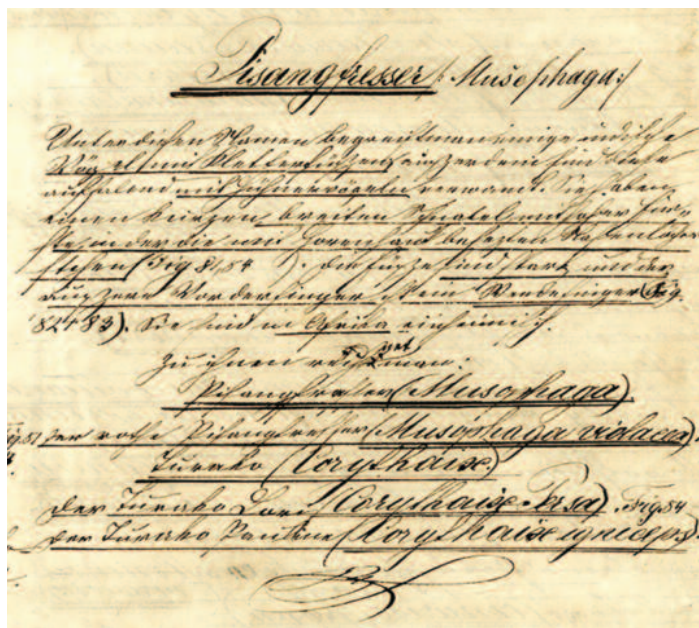 Pisangfresser /: Musephaga :/
Unter diesen Namen begreift man einige indische
Vögel mit Kletterfüßen, außerdem sind diese
auffalend mit Hühnervögeln verwandt. Sie haben
einen kurzen breiten Schnabel mit hoher Fir-
ste, in der die mit Hornhaut besezten Nasenlöcher
stehen (Fig 81, 84 ). Die Füße sind stark und der
äußere Vorderfinger ist ein Wendefinger (Fig.
82 + 83). Sie sind in Afrika einheimisch.
Zu ihnen man:
Pisangfresser (Musophaga)
Der rothe Pisangfresser (Musophaga violacea).
Turako (Corythaix)
Der Turako Lori (Corythaix Persa). Fig. 84
Der Turako Pauline (Corythaix igniceps).